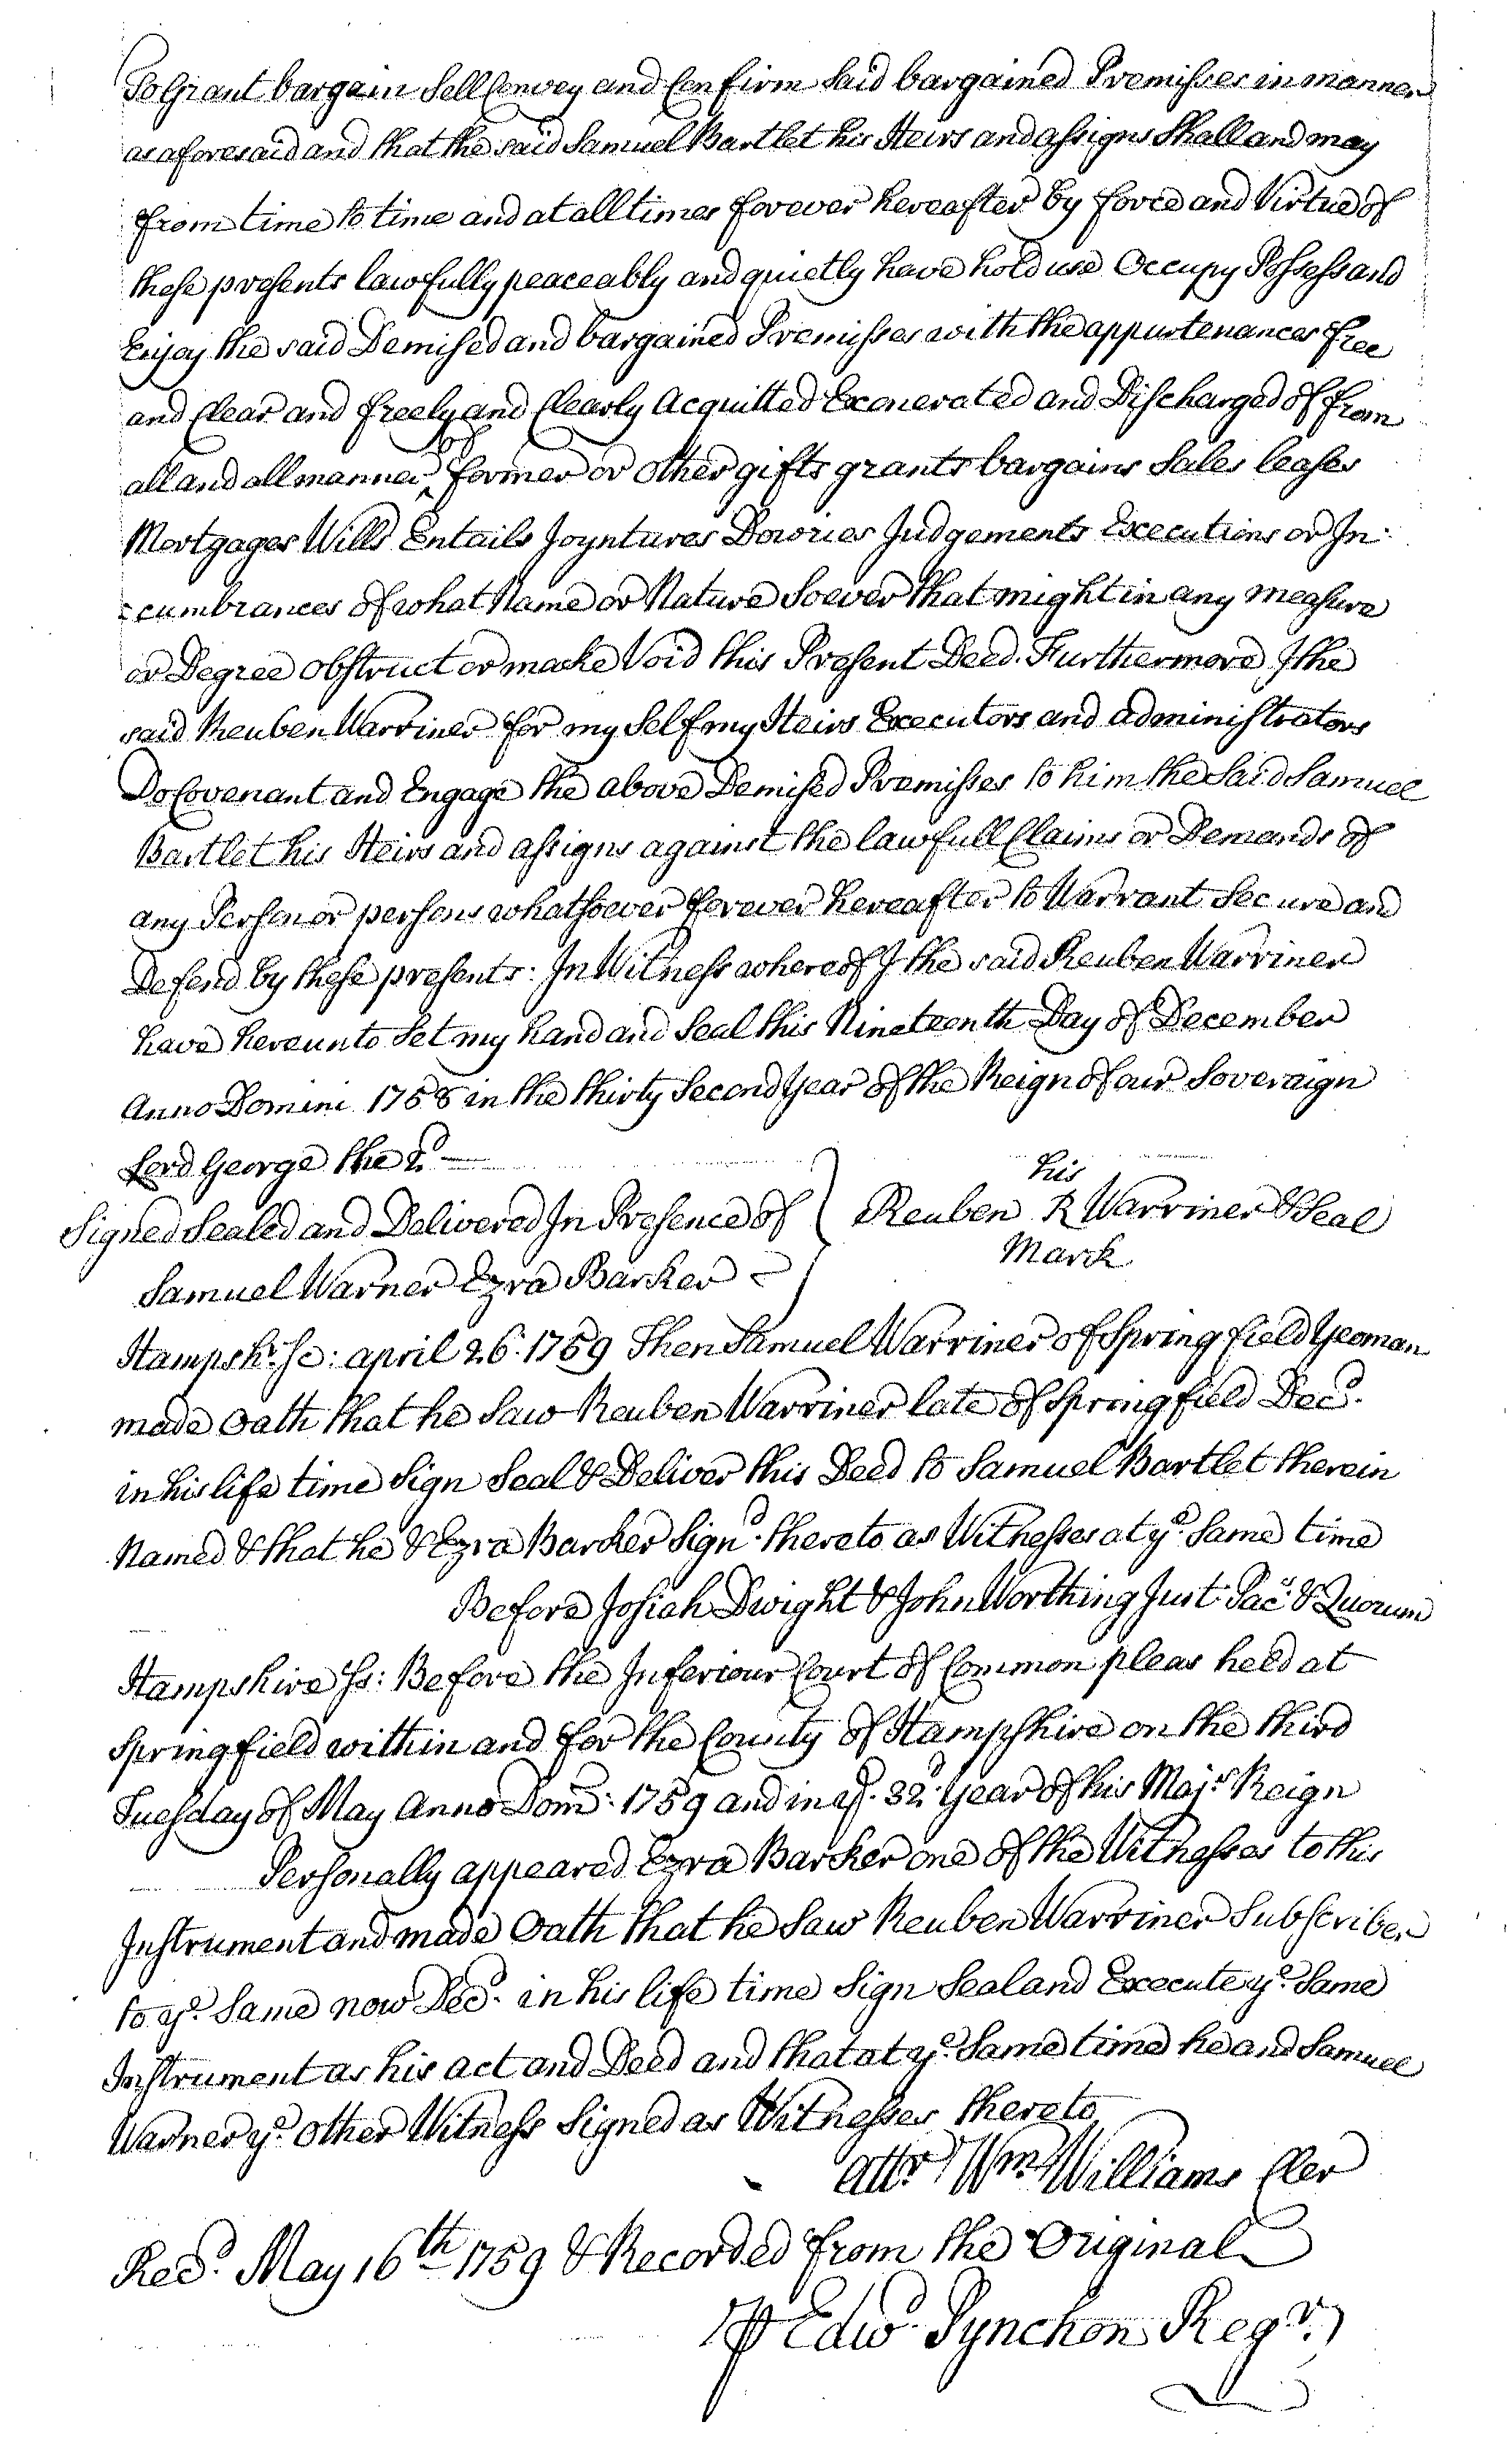 To Grant bargain Sell Convey and Confirm said bargained Premisses in manner
as aforesaid and that the said Samuel Bartlet his Heirs and assigns Shall and may
from time to time and at all times forever hereafter by force and Virtue of
these presents lawfully peaceably and quietly have hold use Occupy Possess and
Enjoy the said Demised and bargained Premisses with the appurtenances free
and Clear and freely and Clearly Acquitted Exonerated and Discharged of from
all and all manner of former or other gifts grants bargains Sales leases
Mortgages Wills Entails Joyntures Dowries Judgements Executions or In:
:cumbrances of what Name or Nature Soever that might in any measure
or Degree obstruct or make Void this Present Deed. Furthermore I the
said Reuben Warriner for my Self my Heirs Executors and administrators
Do Covenant and Engage the above Demised Premisses to him the Said Samuel
Bartlet his Heirs and assigns against the lawfull Claims or Demands of
any Person or persons whatsoever forever hereafter to Warrant Secure and
Defend by these presents: In Witness whereof I the said Reuben Warriner
have hereunto Set my hand and Seal this Nineteenth Day of December
Anno Domini 1758 in the thirty Second Year of the Reign of our Soveraign
Lord George the 2d
his
Signed Sealed and Delivered In Presence of } Reuben R Warriner & Seal
Mark
Samuel Warner Ezra Barker
Hampshr. Sc: april 26. 1759 Then Samuel Warriner of Springfield Yeoman
made Oath that he Saw Reuben Warriner late of Springfield Decd.
in his life time Sign Seal & Deliver this Deed to Samuel Bartlet therein
Named & that he & Ezra Barker Signd. thereto as Witnesses at ye. Same time
Before Josiah Dwight & John Worthing Just. Pac. & Quorum
Hampshire Ss: Before the Inferiour Court of Common pleas held at
Springfield within and for the County of Hampshire on the third
Tuesday of May Anno Dom: 1759 and in ye. 32d Year of his Majs. Reign
Personally appeared Ezra Barker one of the Witnesses to this
Instrument and made Oath that he Saw Reuben Warriner Subscriber
to ye. Same now Decd. in his life time Sign Seal and Execute ye. Same
Instrument as his act and Deed and that at ye. Same time he and Samuel
Warner ye. other Witness Signed as Witnesses thereto
Attr Wm Williams Cler
Recd. May 16th 1759 & Recorded from the Original
⅌ Edwd. Pynchon Regr.